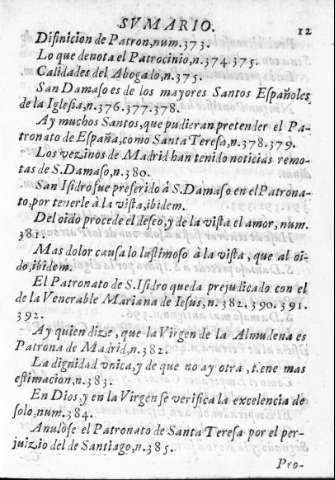 SVMARIO. 12
Difinicion de Patron,num.373.
Lo que denota el Patrocinio,n.374.375.
Calidades del Abogado,n.375.
San Damaso es de los mayores Santos Españoles
de la Iglesia,n.376.377.378.
Ay muchos Santos,que pudieran pretender el Pa-
tronato de España,como Santa Teresa,n.378.379.
Los vezinos de Madrid han tenido noticias remo-
tas de S.Damaso,n.380.
San Isidro fue preferido à S.Damaso en el Patrona-
to,por tenerle à la vista,ibidem.
Del oido procede el deseo,y de la vista el amor, num.
381.
Mas dolor causa lo lastimoso à la vista, que al oi-
do,ibidem.
El Patronato de S.Isidro queda prejudicado con el
de la Venerable Mariana de Iesus, n. 382.390.391.
392.
Ay quien dize, que la Virgen de la Almudena es
Patrona de Madrid,n.382.
La dignidad vnica,y de que no ay otra, tiene mas
estimacion,n.383.
En Dios,y en la Virgen se verifica la excelencia de
solo,num.384.
Anulòse el Patronato de Santa Teresa por el per-
juizio del de Santiago,n.385.
Pro-